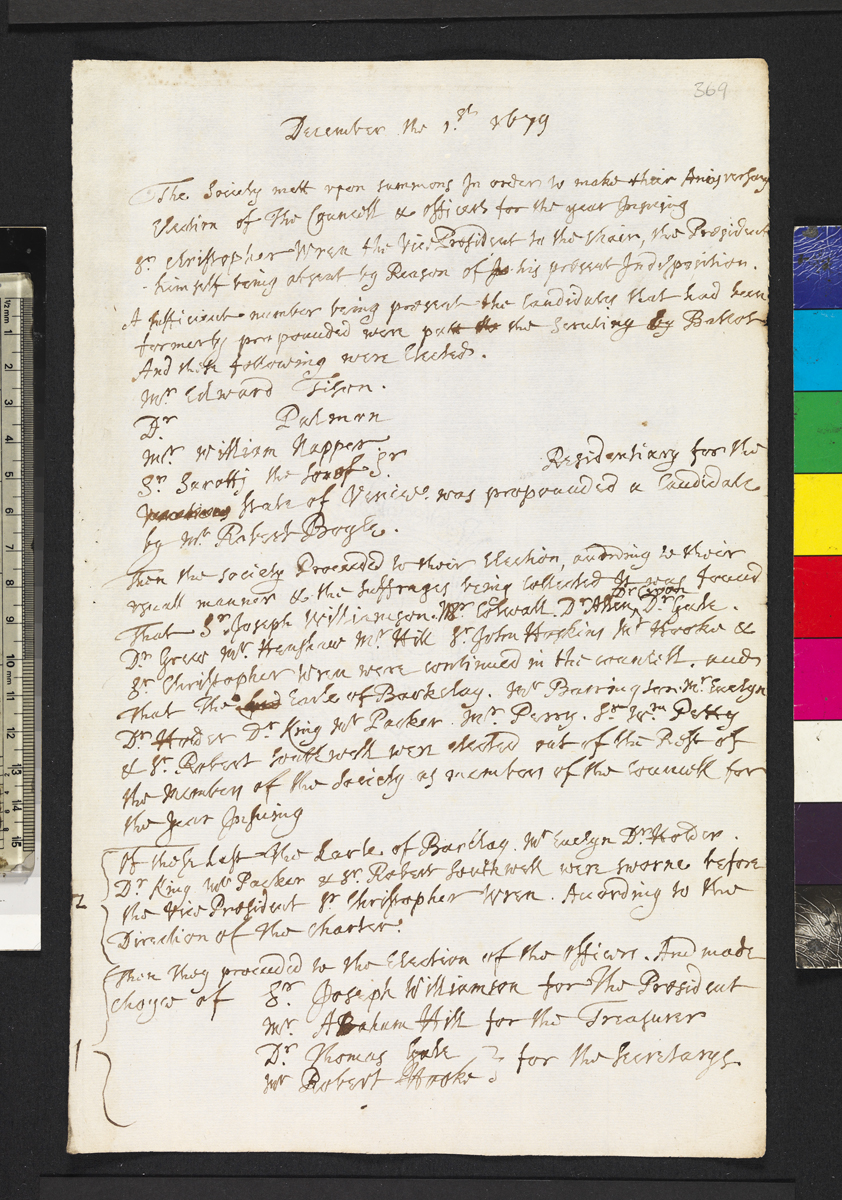 369
December the 1.st 1679
The Society mett upon summons In order to make their Aniversary
Election of The Councell & officers for the year Insuing
Sr. Christopher Wren the Vice President in the Chair, the President
himself being absent by Reason of his present Indisposition.
A sufficient number being present the Candidates that had been
formerly propounded were putt to the Scrutiny by Ballot
And thes following were Elected.
Mr Edward Tison.
Dr Palman
Mr William Napper
Sr Sarotti the son of Sr Residentiary for the
State of Venice. was propounded a Candidate
by Mr Robert Boyle.
Then the Society Proceeded to their Election, acording to their
usuall manner & the suffrages being Collected It was found
Dr Croon
That Sr Joseph Williamson. Mr Colwall. Dr Allen, Dr Gale.
Dr Grew Mr Henshaw Mr Hill Sr John Hoskins Mr Hooke &
Sr Christopher Wren were continued in the councell. and
That the Earle of Barkclay. Mr Barringson. Mr Evelyn
Dr Holder Dr King Mr Packer. Mr Perry. Sr Wm Petty
& Sr. Robert Southwell were elected out of the Rest of
the Members of the Society as members of the Councell for
the year Insuing
Of these Last The Earle of Barclay. Mr Evelyn Dr Holder.
Dr King Mr Packer & Sr. Robert Southwell were sworne before
2
the Vice President Sr Christopher Wren. According to the
Direction of the Charter.
Then they proceeded to the Election of the officers. And made
choyce of Sr. Joseph Williamson for The President
Mr. Abraham Hill for the Treasurer
1
Dr. Thomas Gale } for the Secretarys
Mr Robert Hooke